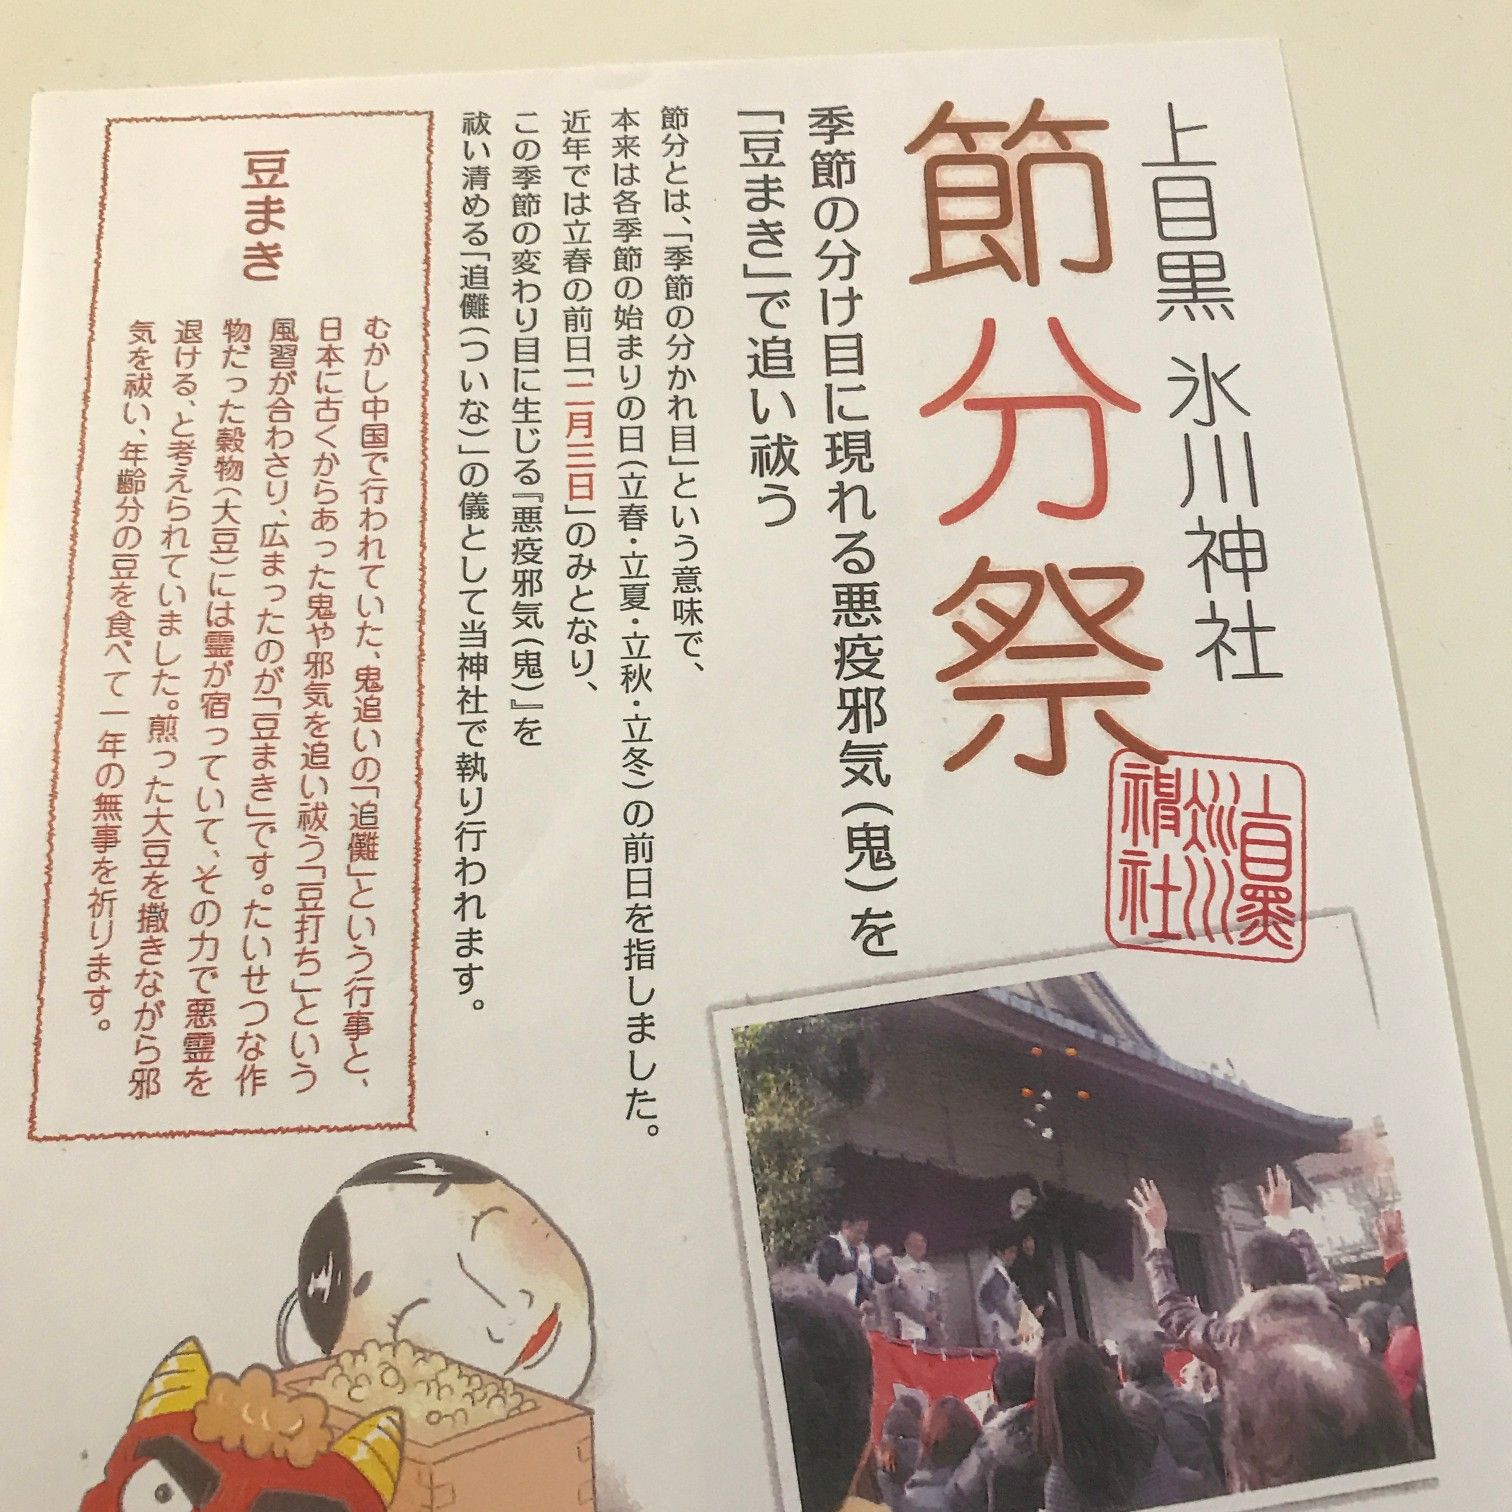 上目黒 氷川神社
節分祭
上目黒氷川神社
季節の分け目に現れる悪疫邪気(鬼)を
「豆まき」で追い祓う
節分とは、「季節の分かれ目」という意味で、
本来は各季節の始まりの日(立春・立夏・立秋・立冬)の前日を指しました。
近年では立春の前日「二月三日」のみとなり、
この季節の変わり目に生じる『悪疫邪気(鬼)』を
祓い清める「追儺(ついな)」の儀として当神社で執り行われます。
豆まき
むかし中国で行われていた、鬼追いの「追儺」という行事と、
日本に古くからあった鬼や邪気を追い祓う「豆打ち」という
風習が合わさり、広まったのが「豆まき」です。たいせつな作
物だった穀物(大豆)には霊が宿っていて、その力で悪霊を
退ける、と考えられていました。煎った大豆を撒きながら邪
気を祓い、年齢分の豆を食べて一年の無事を祈ります。